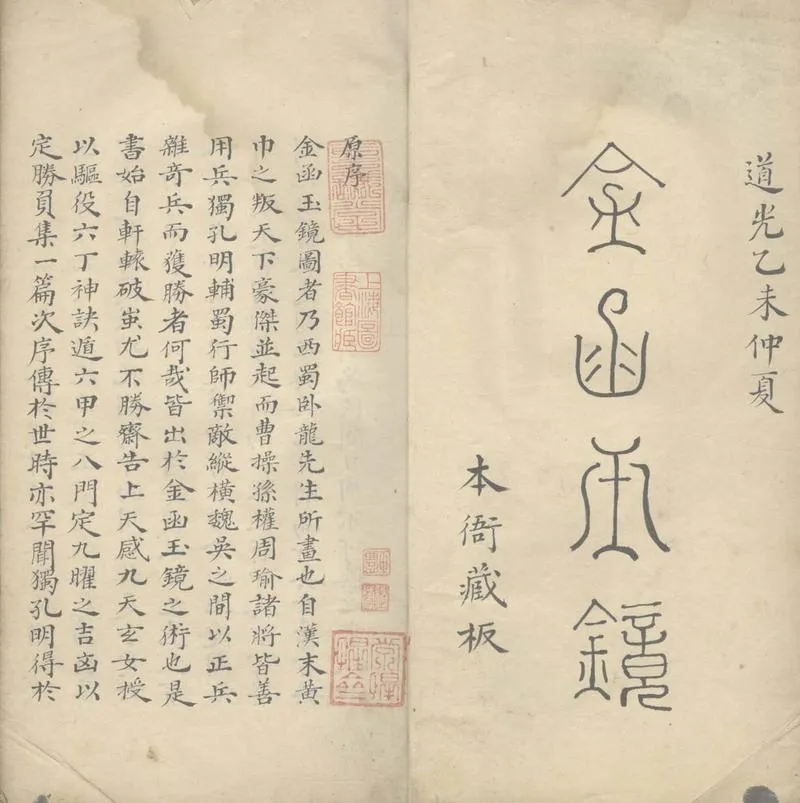 道光乙未仲夏
金函玉鏡
本衙藏板
原序
金函玉鏡圖者乃西蜀卧龍先生所畫也自漢末黄
巾之叛天下豪傑並起而曹操孫權周瑜諸將皆善
用兵獨孔明輔蜀行師禦敵縱橫魏吳之間以正兵
雜竒兵而獲勝者何哉皆出於金函玉鏡之術也是
書始自軒轅破蚩尤不勝齋告上天感九天玄女授
以驅役六丁神訣遁六甲之八門定九曜之吉凶以
定勝負集一篇次序傳於世時亦罕聞獨孔明得於
上海圖
書館藏